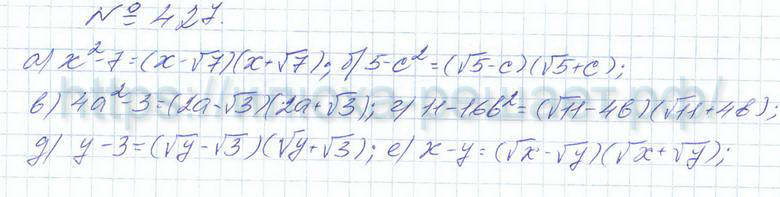 № 427.
а) x²-7=(x-√7)(x+√7); б) 5-c²=(√5-c)(√5+c);
в) 4a²-3=(2a-√3)(2a+√3); г) 11-16b²=(√11-4b)(√11+4b);
д) y-3=(√y-√3)(√y+√3); е) x-y=(√x-√y)(√x+√y);